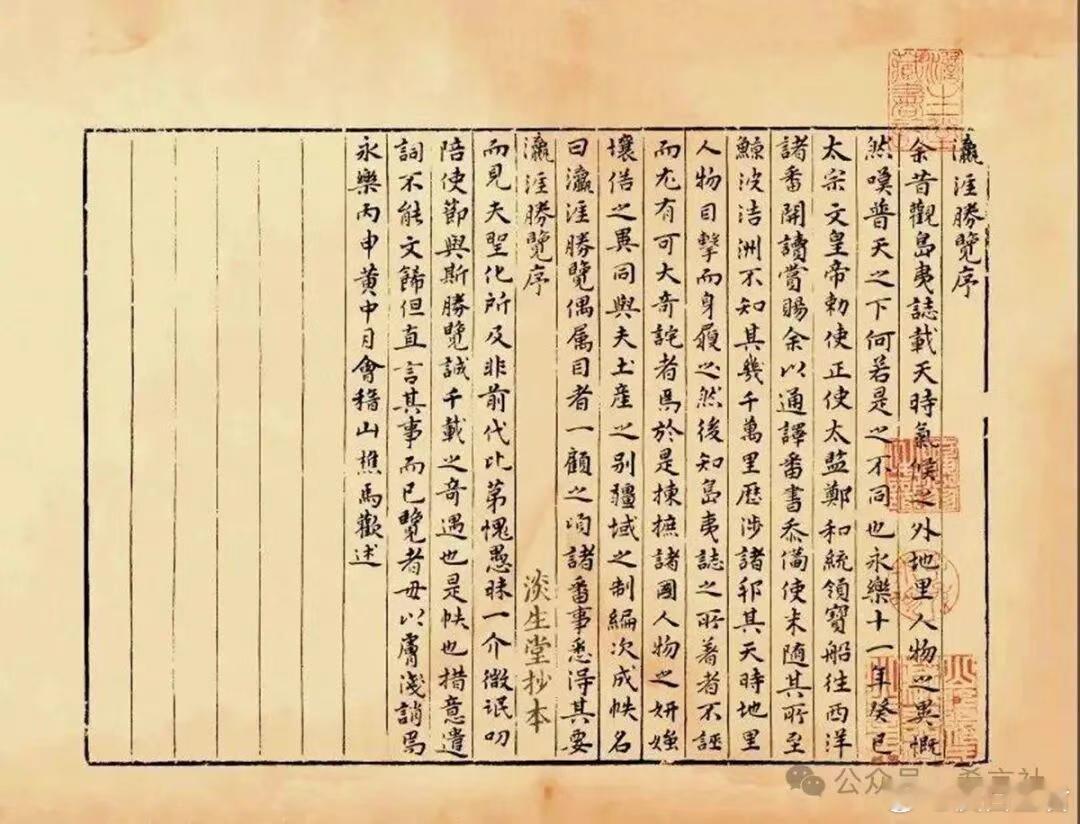 瀛涯勝覽序
余昔觀島夷誌載天時氣候之外地里人物之異慨
然嘆普天之下何若是之不同也永樂十一年癸巳
太宗文皇帝勅使正使太監鄭和統領寶船往西洋
諸番開讀賞賜余以通譯番書忝備使末随其所至
鯨波浩洲不知其幾千萬里歷涉諸邦其天時地里
人物目擊而身履之然後知島夷誌之所著者不誣
而尤有可大奇詫者焉於是揀摭諸國人物之妍媸
壤俗之異同與夫土產之别疆域之制編次成帙名
曰瀛涯勝覽偶属目者一顧之頃諸番事悉得其要
瀛涯勝覽序
淡生堂抄本
而見夫聖化所及非前代比第愧愚昧一介微氓叨
陪使節與斯勝覽誠千載之奇遇也是帙也措意遣
詞不能文餙但直言其事而已覽者毋以膚淺誚焉
永樂丙申黄中月會稽山樵馬歡述
公众号 希言社